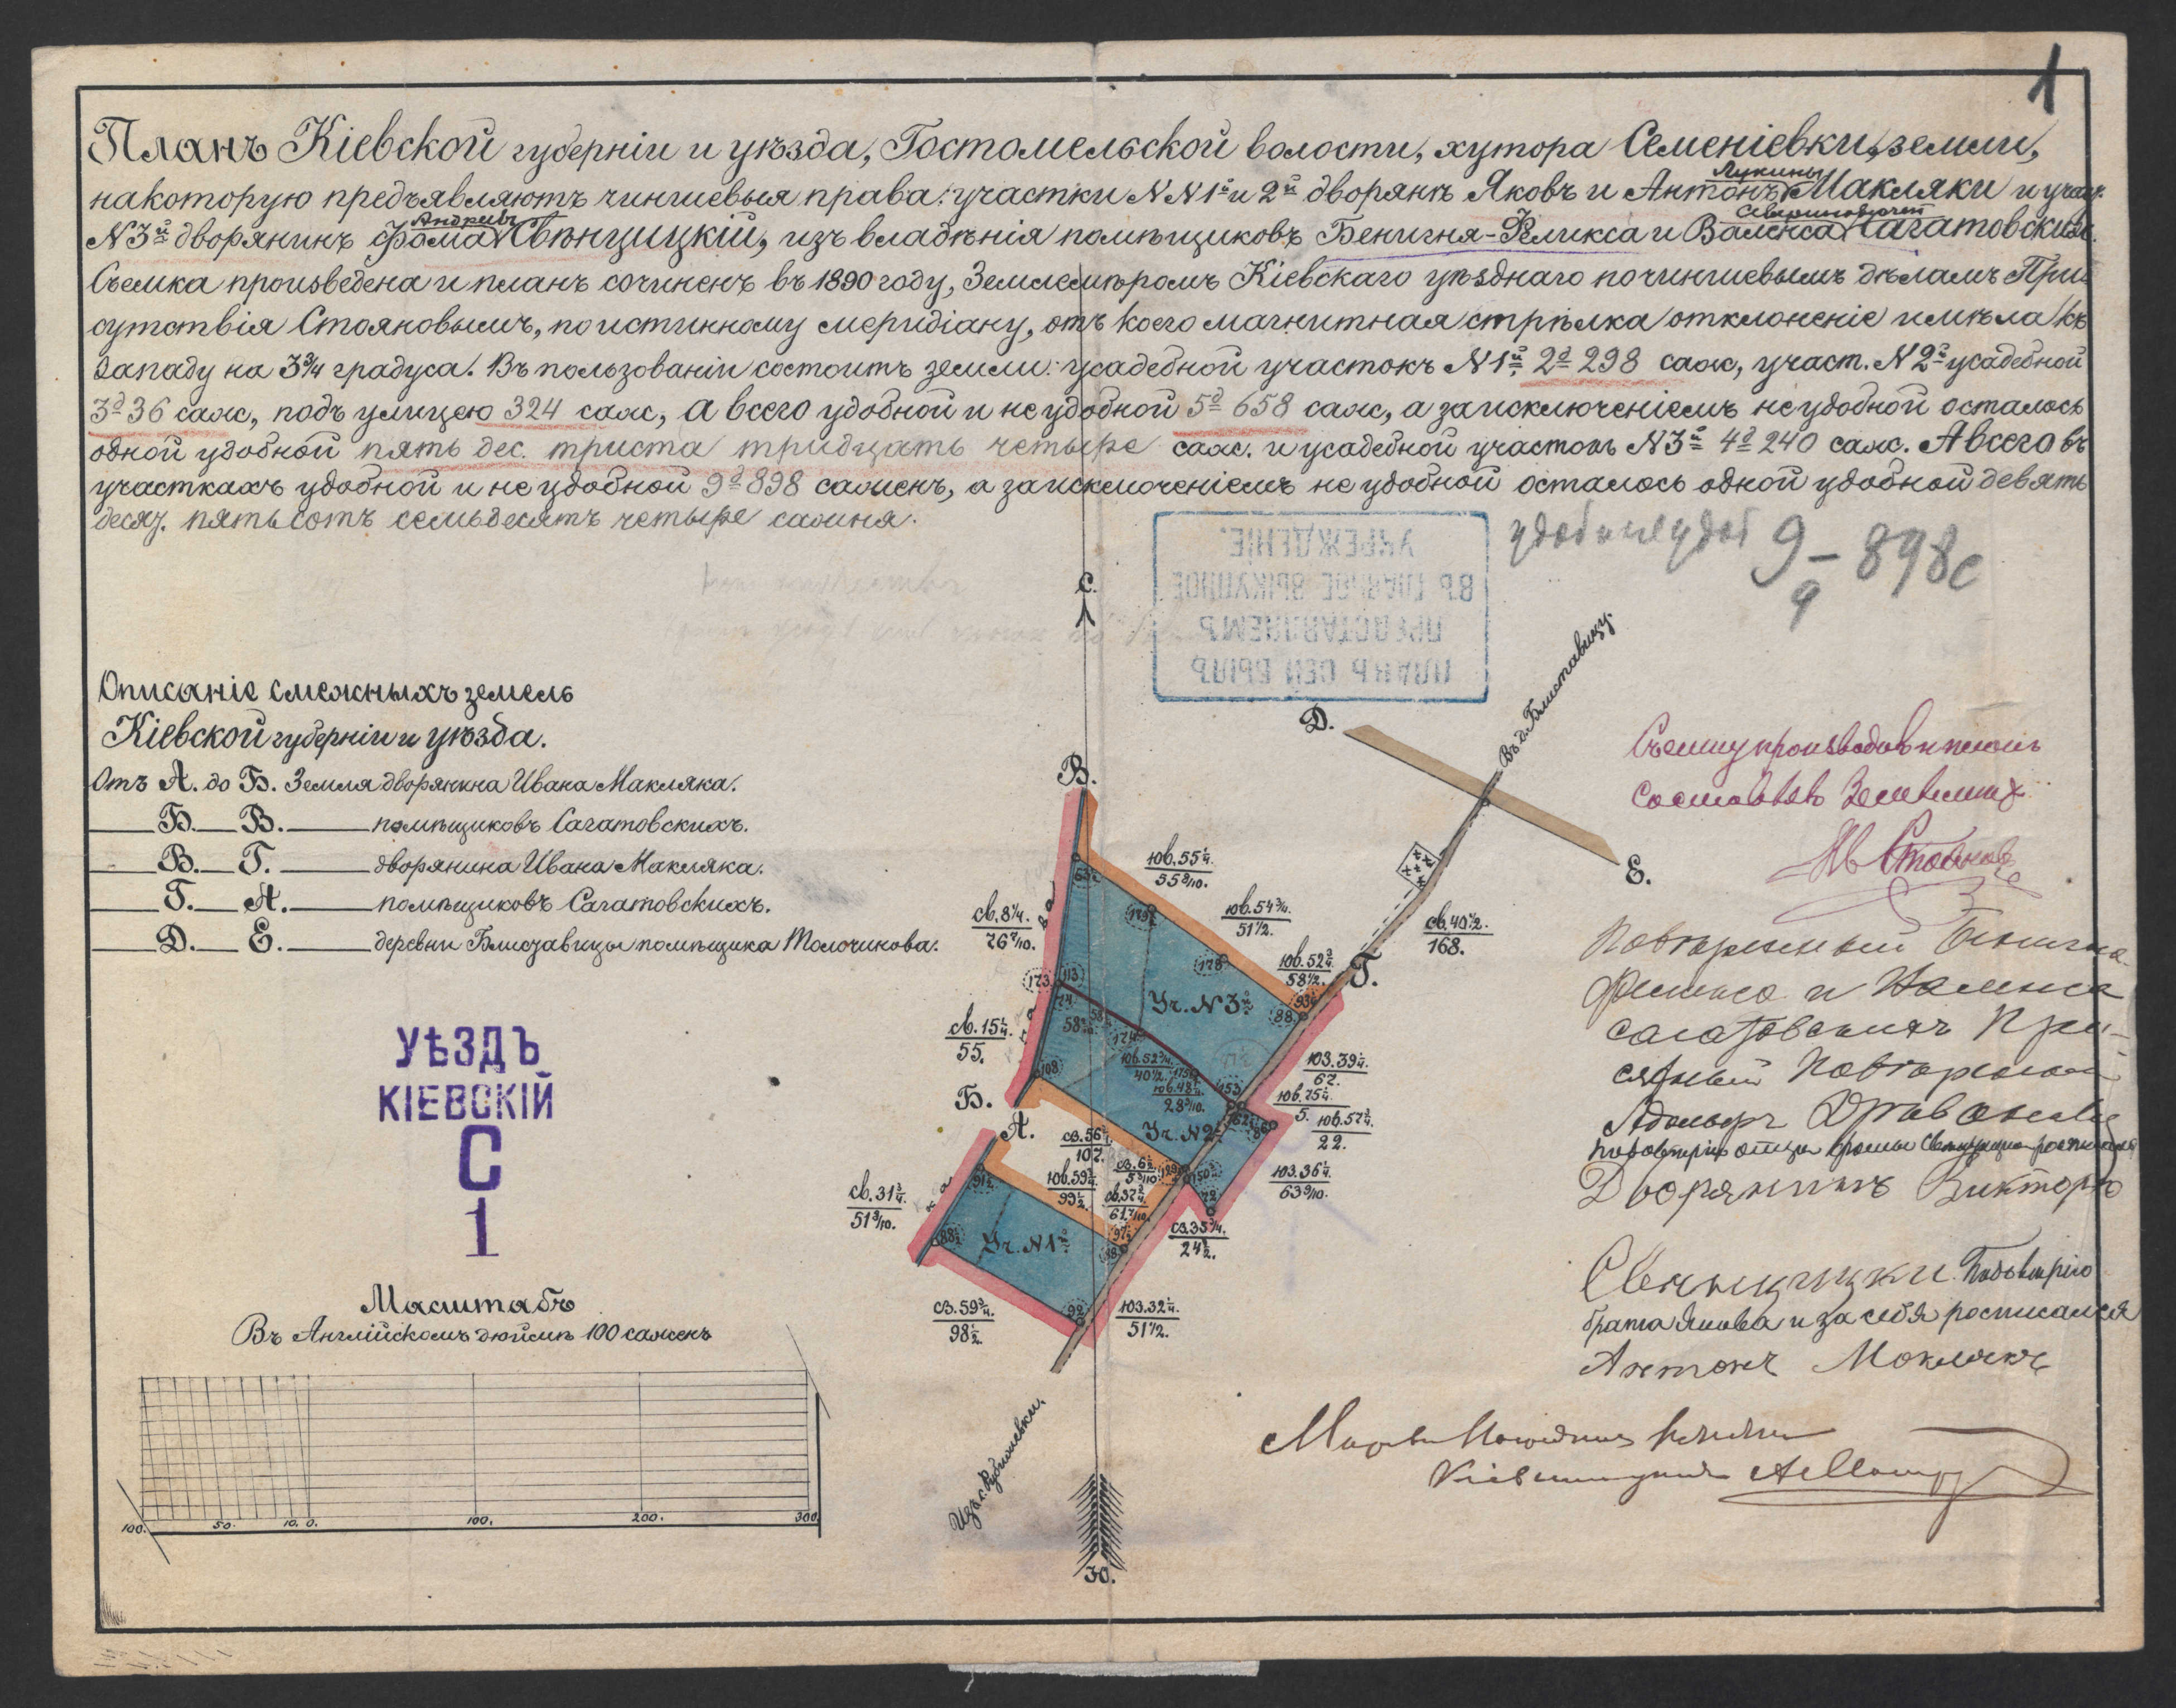 1
Планъ Кіевской губерніи и уѣзда, Гостомельской волости, хутора Семеніевки, земли,
на которую предъявляютъ чиншевыя права: участки N N 1й и 2й дворянъ Яковъ и Антонъ Лукины Макляки и участ.
N 3й дворянинъ Фома Андреевъ Свѣнцицкій, изъ владѣнія помѣщиковъ Бенигня-Феликса и Валенса Севериновичей Сагатовскихъ.
Съемка произведена и планъ сочиненъ въ 1890 году, Землемѣромъ Кіевскаго уѣзднаго по чиншевымъ дѣламъ При
сутствія Стояновымъ, по истинному меридіану, отъ коего магнитная стрѣлка отклоненіе имѣла къ
западу на 3¾ градуса. Въ пользованіи состоитъ земли: усадебной участокъ N 1й, 2д 298 саж, участ. N 2й усадебной
3д 36 саж, подъ улицею 324 саж, а всего удобной и неудобной 5д 658 саж, а за исключеніемъ неудобной осталось
одной удобной пять дес. триста тридцать четыре саж. и усадебной участокъ N 3й 4д 240 саж. А всего въ
участкахъ удобной и неудобной 9д 898 саженъ, а за исключеніемъ неудобной осталось одной удобной девять
десят. пятьсотъ семьдесятъ четыре сажня.
9 - 898с
9
ПЛАНЪ СЕЙ БЫЛЪ
ПРЕДСТАВЛЯЕМЪ
ВЪ ГЛАВНОЕ ВЫКУПНОЕ
УЧРЕЖДЕНІЕ.
С.
Описаніе смежныхъ земель
Кіевской губерніи и уѣзда.
Отъ А. до Б. Земля дворянина Ивана Макляка.
Б. В. помѣщиковъ Сагатовскихъ.
В. Г. дворянина Ивана Макляка.
Г. А. помѣщиковъ Сагатовскихъ.
Д. Е. деревни Блиставицы помѣщика Толочикова.
УѢЗДЪ
КІЕВСКІЙ
С
1
Масштабъ
Въ Англійскомъ дюймѣ 100 саженъ
100. 50. 10. 0. 100. 200. 300.
Въ д. Блиставицу.
Д.
Е.
В.
Г.
Б.
А.
юв. 55¼.
юв. 54¾.
51½.
юв. 52¾.
58½.
св. 40½.
168.
св. 8¼.
76⁷/₁₀.
св. 15¼.
55.
юз. 39¼.
67.
юв. 75¼.
5.
юв. 57¾.
22.
юз. 36¼.
63⁹/₁₀.
сз. 35¾.
24½.
св. 31¾.
51³/₁₀.
сз. 59¾.
98½.
юз. 32¼.
51½.
107.
юв. 59¾.
99½.
Уч. N 3й
Уч. N 2й
Уч. N 1й
Ю.
Съемку производилъ и планъ
составлялъ Землемѣръ
Ив Стояновъ
Повѣренный Бенигна
Феликса и Валенса
Сагатовскихъ При-
сяжный Повѣренный
Адольфъ
Дворянинъ Викторъ
Свенцицки. По довѣрію
брата Якова и за себя росписался
Антонъ Моклякъ